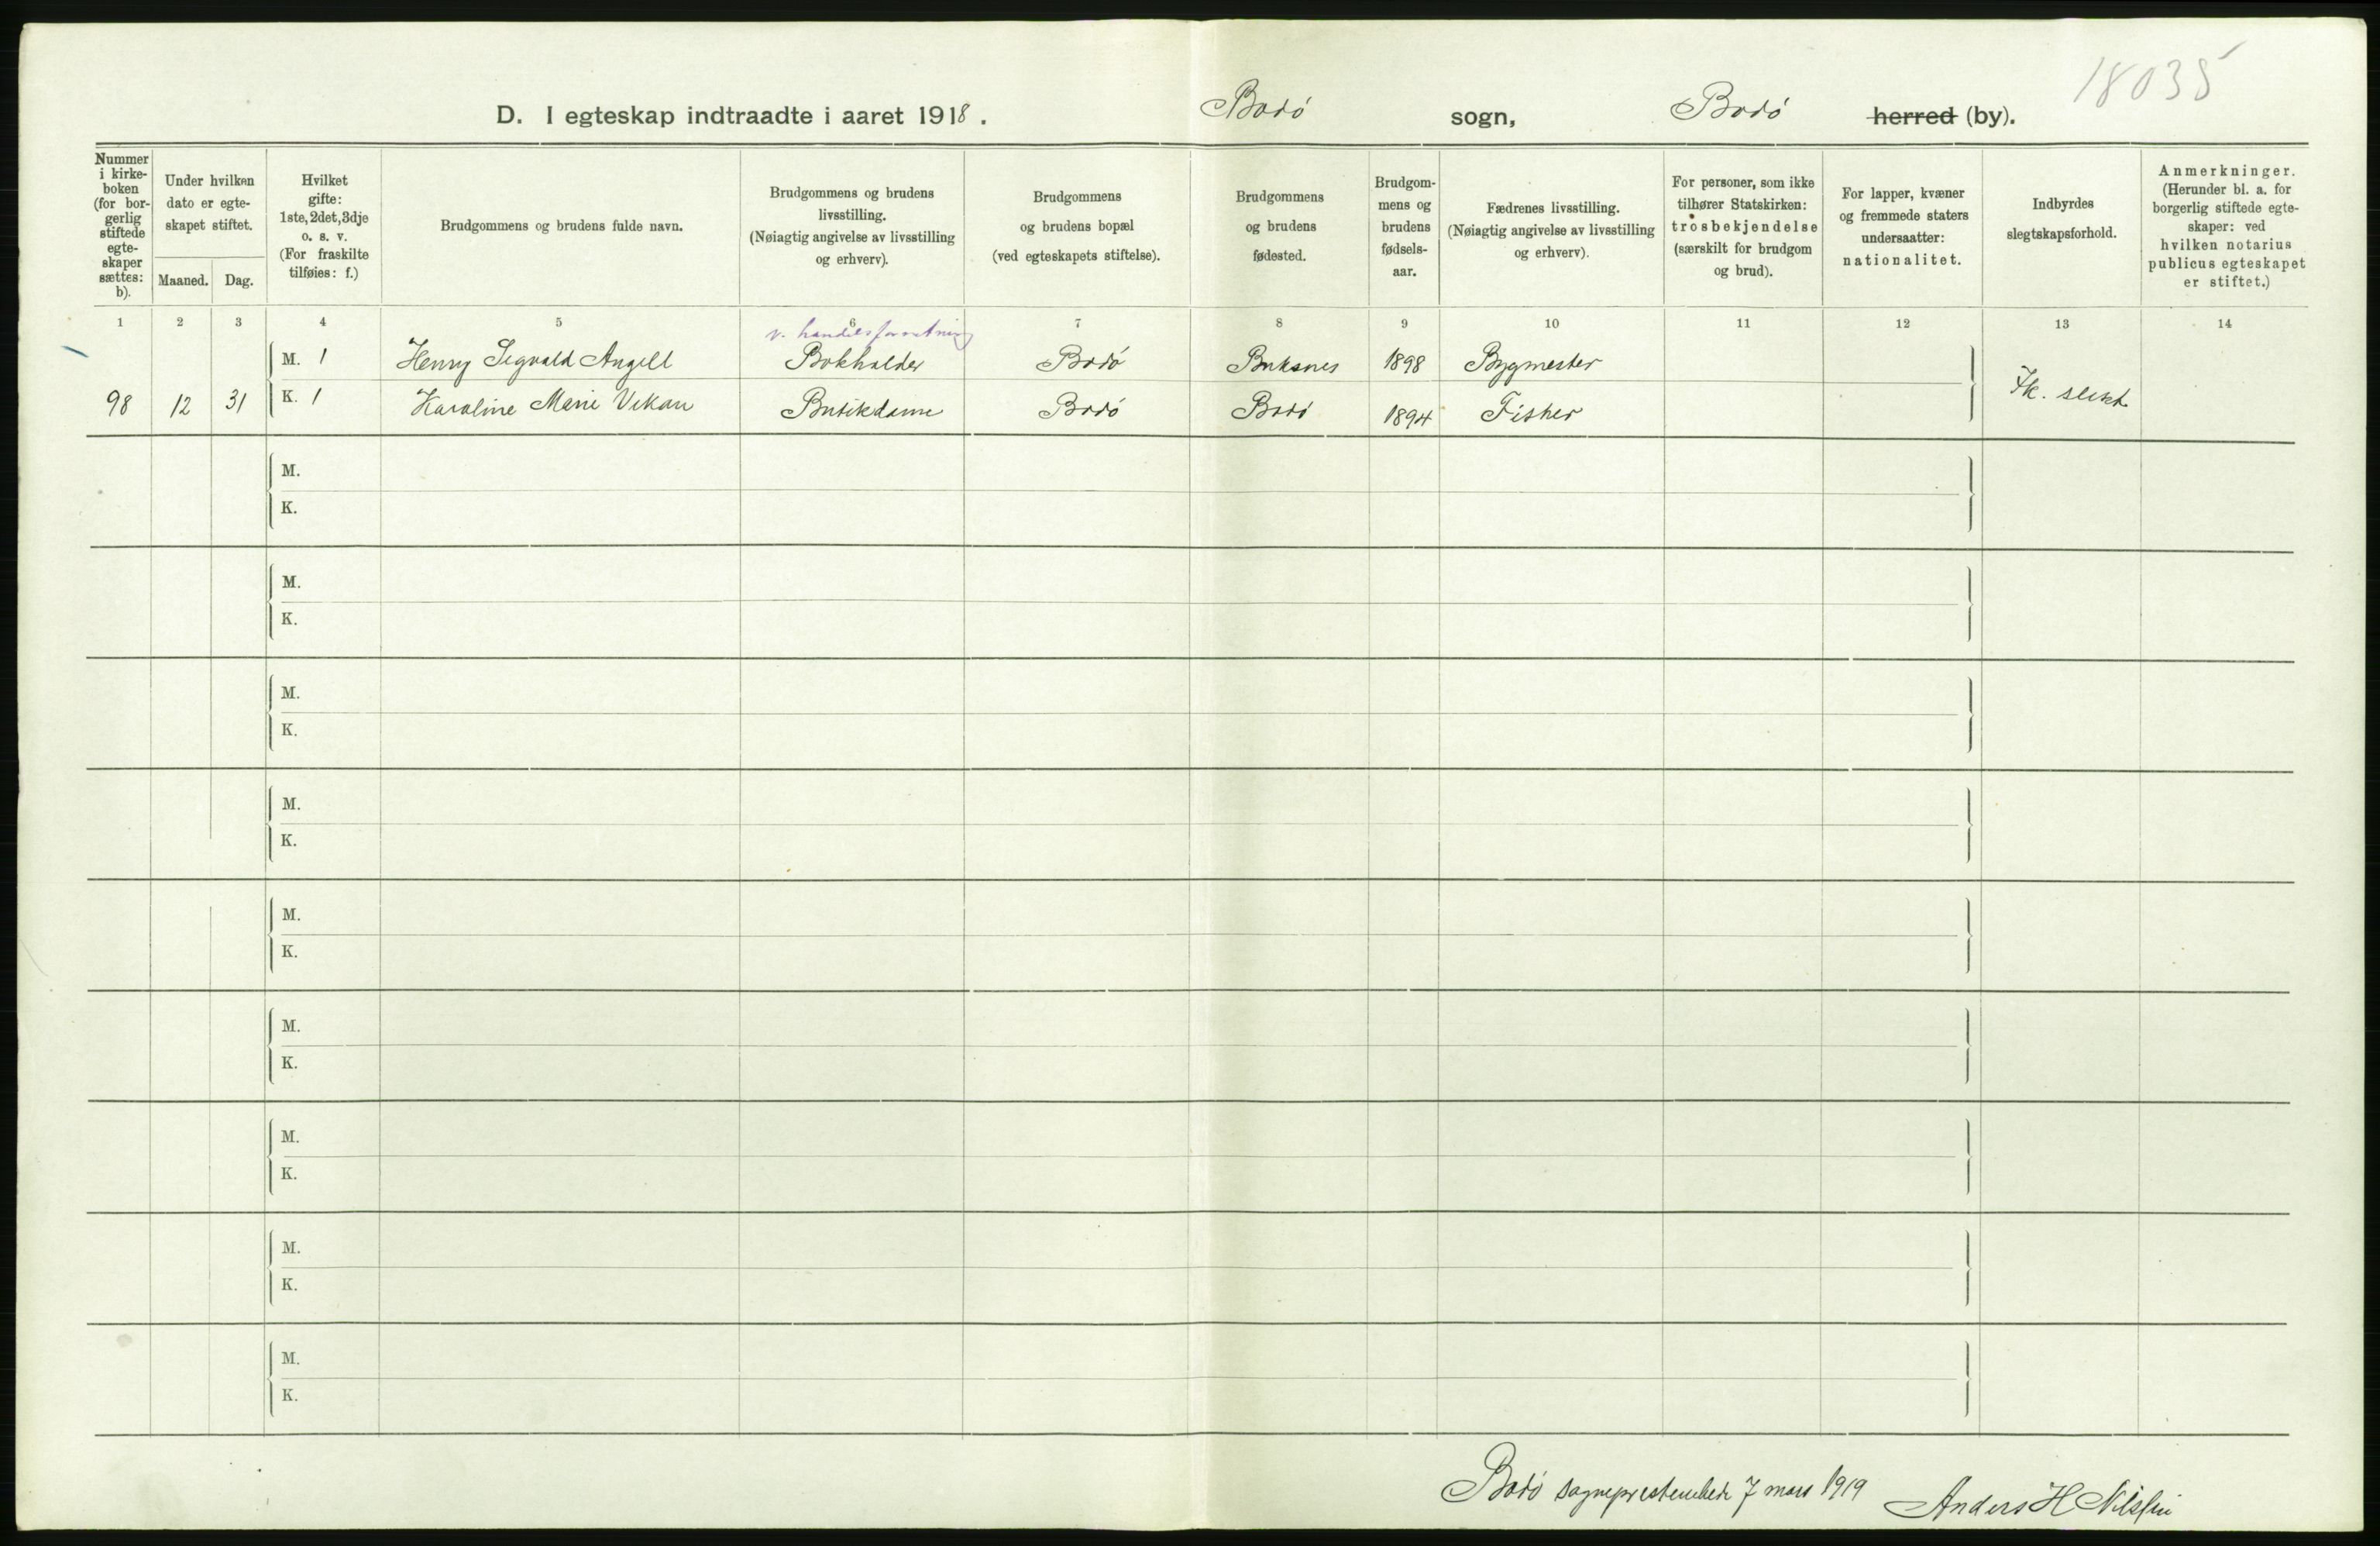 18035
D. I egteskap indtraadte i aaret 1918. Bodó sogn, Bodó herred (by).
Nummer i kirke-boken (for bor-gerlig stiftede egte-skaper sættes: b).
Under hvilken dato er egte-skapet stiftet.
Maaned. Dag.
Hvilket gifte: 1ste, 2det, 3dje o. s. v. (For fraskilte tilføies: f.)
Brudgommens og brudens fulde navn.
Brudgommens og brudens livsstilling. (Nøiagtig angivelse av livsstilling og erhverv).
Brudgommens og brudens bopæl (ved egteskapets stiftelse).
Brudgommens og brudens fødested.
Brudgom-mens og brudens fødsels-aar.
Fædrenes livsstilling. (Nøiagtig angivelse av livsstilling og erhverv).
For personer, som ikke tilhører Statskirken: trosbekjendelse (særskilt for brudgom og brud).
For lapper, kvæner og fremmede staters undersaatter: nationalitet.
Indbyrdes slegtskapsforhold.
Anmerkninger. (Herunder bl. a. for borgerlig stiftede egte-skaper: ved hvilken notarius publicus egteskapet er stiftet.)
1 2 3 4 5 6 7 8 9 10 11 12 13 14
v. handelsforretning
M. 1 Henry Sigvald Angell Bokholder Bodó Buksnes 1898 Bygmester
98 12 31 K. 1 Karoline Marie Vikan Butikdame Bodó Bodó 1894 Fisker Ik. slekt
M.
K.
M.
K.
M.
K.
M.
K.
M.
K.
M.
K.
M.
K.
M.
K.
M.
K.
Bodó sogneprestembede 7 mars 1919 Anders H Nilssen